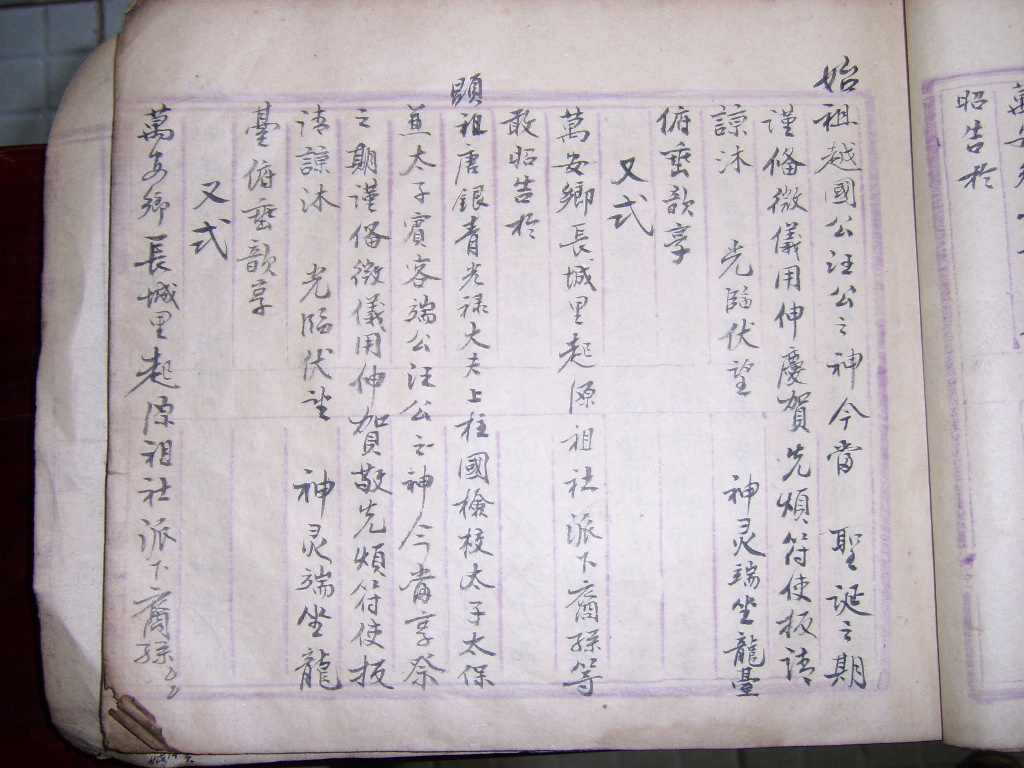 昭告於
始祖越國公汪公之神今當 聖誕之期
謹俻微儀用伸慶賀先煩符使扳請
諒沐 光臨伏望 神灵端坐龍臺
俯垂歆享
又式
萬安鄉長城里起源祖社派下裔孫等
敢昭告於
顕祖唐銀青光禄大夫上柱國檢校太子太保
兼太子賓客端公汪公之神今當享祭
之期謹俻微儀用伸賀敬先煩符使扳
請諒沐 光臨伏望 神灵端坐龍
臺俯垂歆享
又式
萬安鄉長城里起源祖社派下裔孫